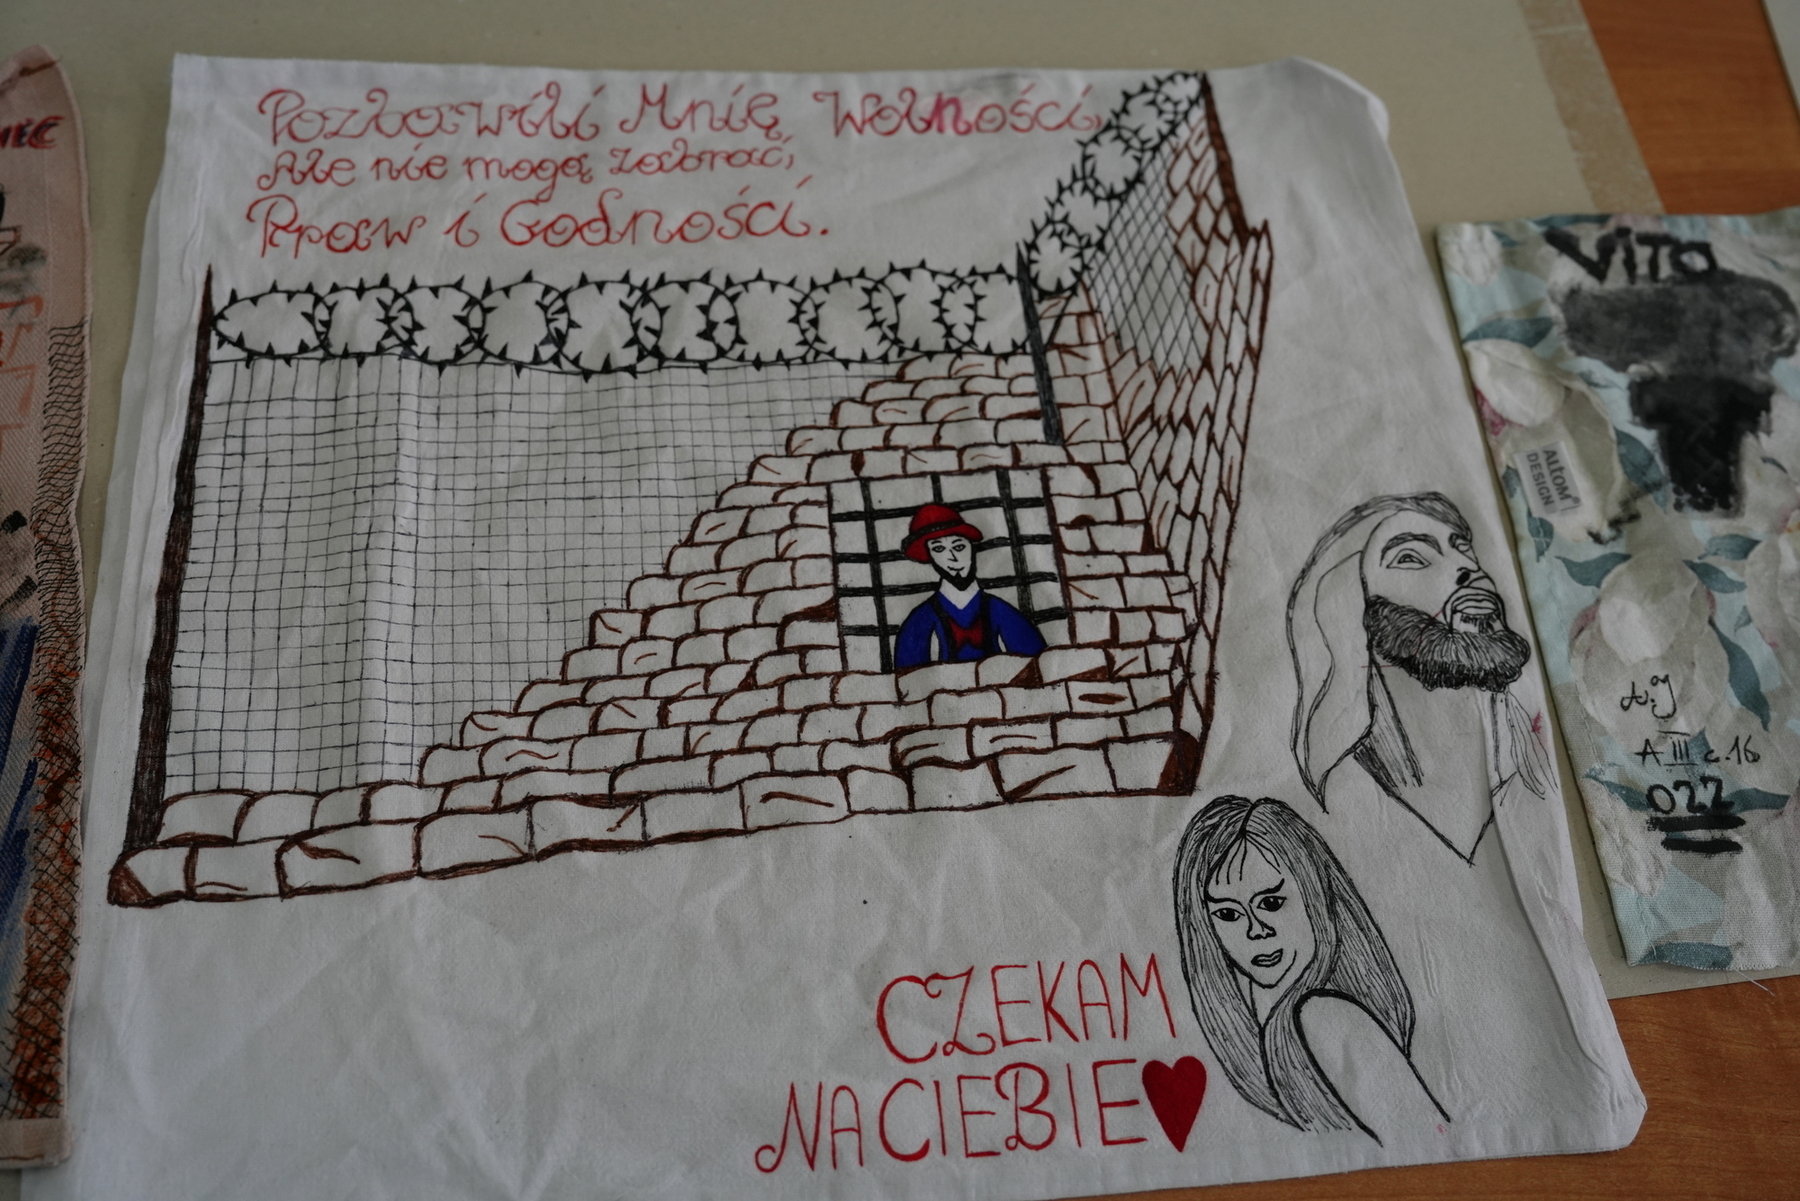 Pozbawili Mnię Wolności,
Ale nie mogą zabrać,
Praw i Godności.
CZEKAM
NA CIEBIE
VITO
Altom
DESIGN
A III c.16
022